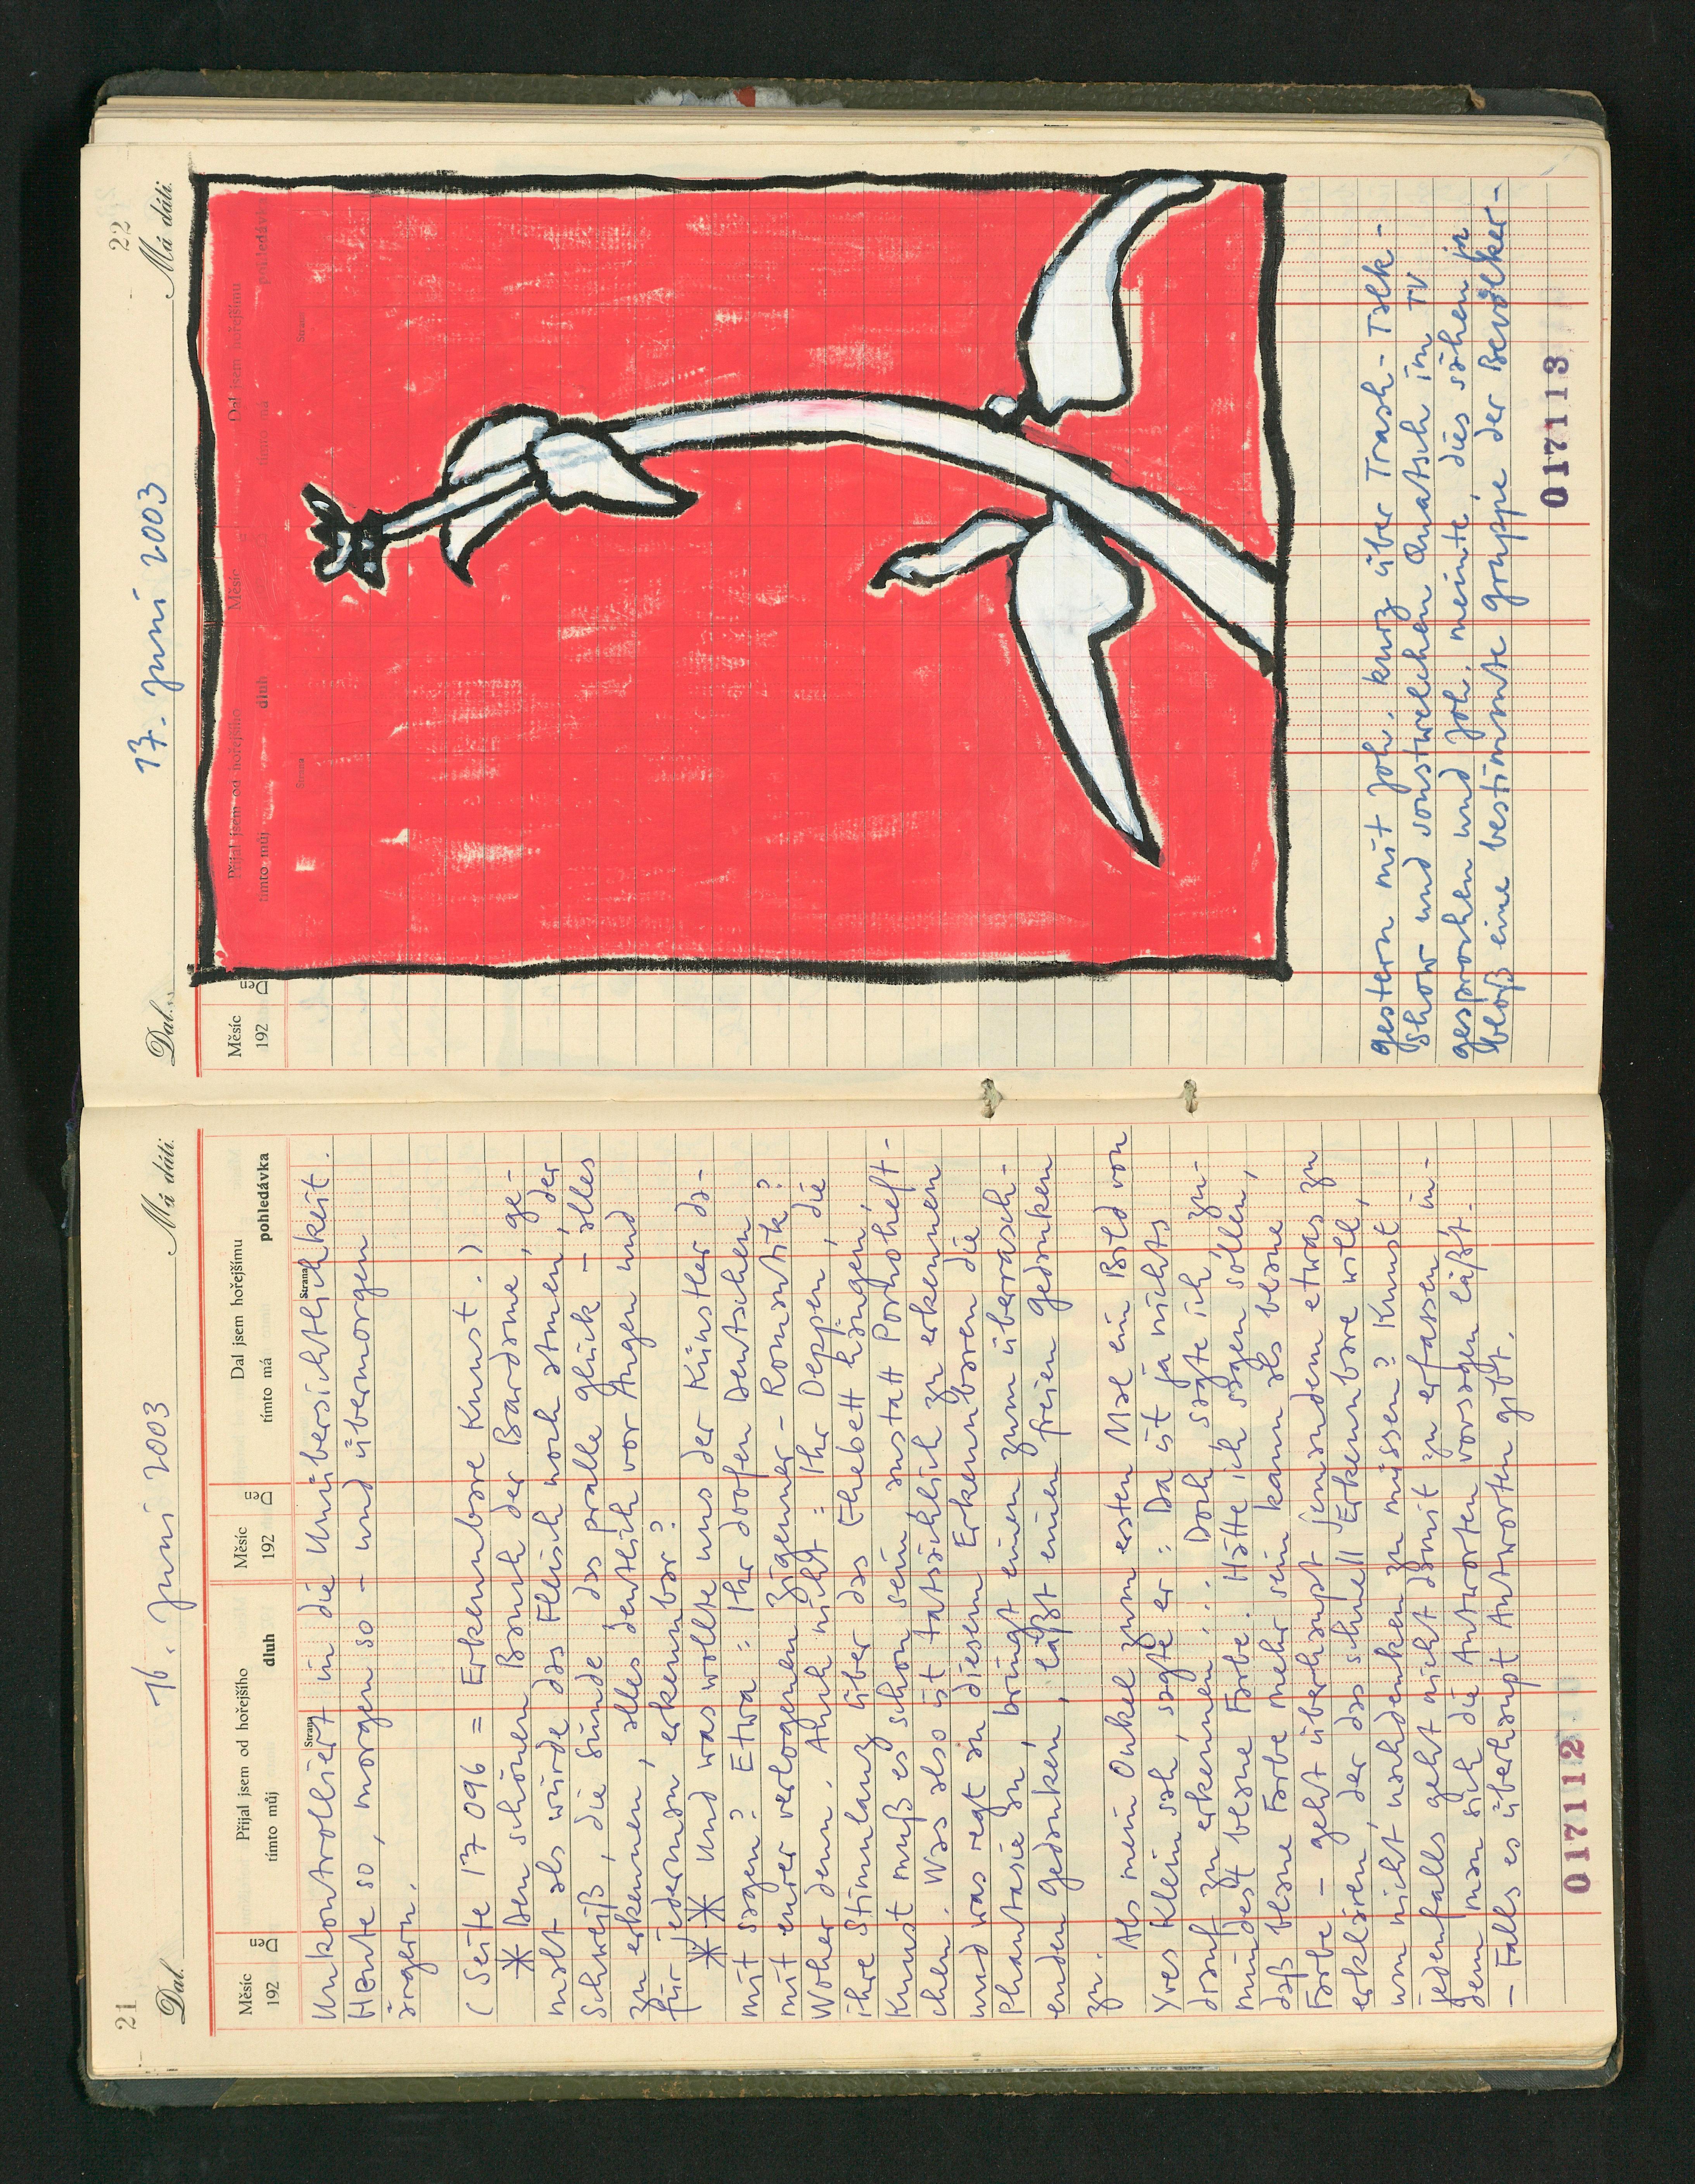 21
16. Juni 2003
Dal.
Má dáti.
Měsíc
192
Den
Přijal jsem od hořejšího
tímto můj
dluh
Měsíc
192
Den
Dal jsem hořejšímu
tímto má
pohledávka
Strana
Strana
Unkontrolliert in die Unübersichtlichkeit.
Heute so, morgen so – und übermorgen
ärgern.
(Seite 17 096 = Erkennbare Kunst.)
* Den schönen Bauch der Bardame, ge-
malt als würde das Fleisch noch atmen, der
Schweiß, die Sünde das pralle Glück – alles
zu erkennen, alles deutlich vor Augen und
für jederman erkennbar?
** Und was wollte uns der Künstler da-
mit sagen? Etwa: Ihr doofen Deutschen
mit eurer verlogenen Zigeuner-Romantik?
Woher denn. Auch nicht: Ihr Deppen, die
ihre Stimulanz über das Ehebett hängen,
Kunst muß es schon sein, anstatt Pornoheft-
chen. Was also ist tatsächlich zu erkennen
und was regt an diesem Erkennbaren die
Phantasie an, bringt einen zum überasch-
enden Gedanken, läßt einen freien Gedanken
zu.
Als mein Onkel zum ersten Mal ein Bild von
Yves Klein sah, sagte er: Da ist ja nichts
drauf zu erkennen... Doch, sagte ich, zu-
mindest blaue Farbe. Hätte ich sagen sollen,
daß blaue Farbe mehr sein kann als blaue
Farbe – geht überhaupt jemandem etwas zu
erklären, der das schnell Erkennbare will,
um nicht nachdenken zu müssen? Kunst
jedenfalls geht nicht damit zu erfassen, in-
dem man sich die Antworten vorsagen läßt.
– Falls es überhaupt Antworten gibt.
017112
22
17. Juni 2003
Dal.
Má dáti.
Měsíc
192
Den
Přijal jsem od hořejšího
tímto můj
dluh
Měsíc
Dal jsem hořejšímu
tímto má
pohledávka
Strana
Strana
Gestern mit Joh. kurz über Trash-Talk-
Show und sonstwelchem Quatsch im TV
gesprochen und Joh. meinte, dies sähen ja
bloß eine bestimmte Gruppe der Bevölker-
017113